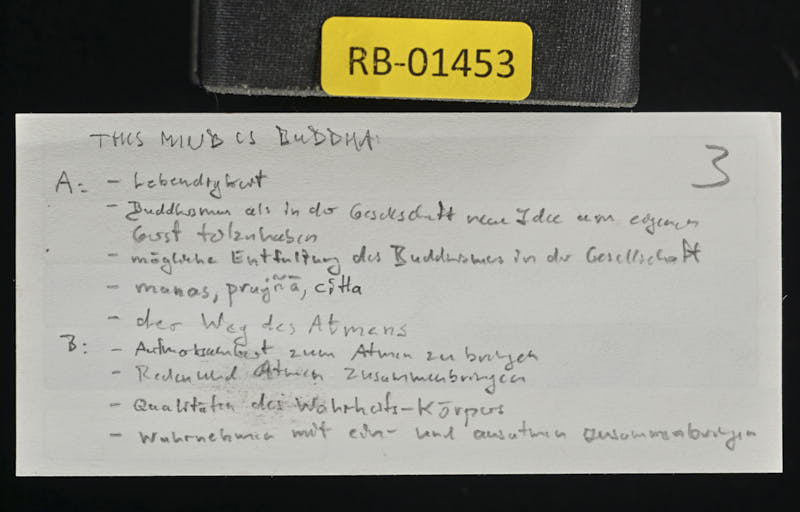 RB-01453
THIS MIND IS BUDDHA:
3
A: - Lebendigkeit
- Buddhismus als in der Gesellschaft neue Idee am eigenen
Geist teilzuhaben
- mögliche Entfaltung des Buddhismus in der Gesellschaft
- manas, prajñā, citta
- der Weg des Atmens
B: - Aufmerksamkeit zum Atmen zu bringen
- Reden und Atmen zusammenbringen
- Qualitäten des Wahrheits-Körpers
- Wahrnehmen mit ein- und ausatmen zusammenbringen